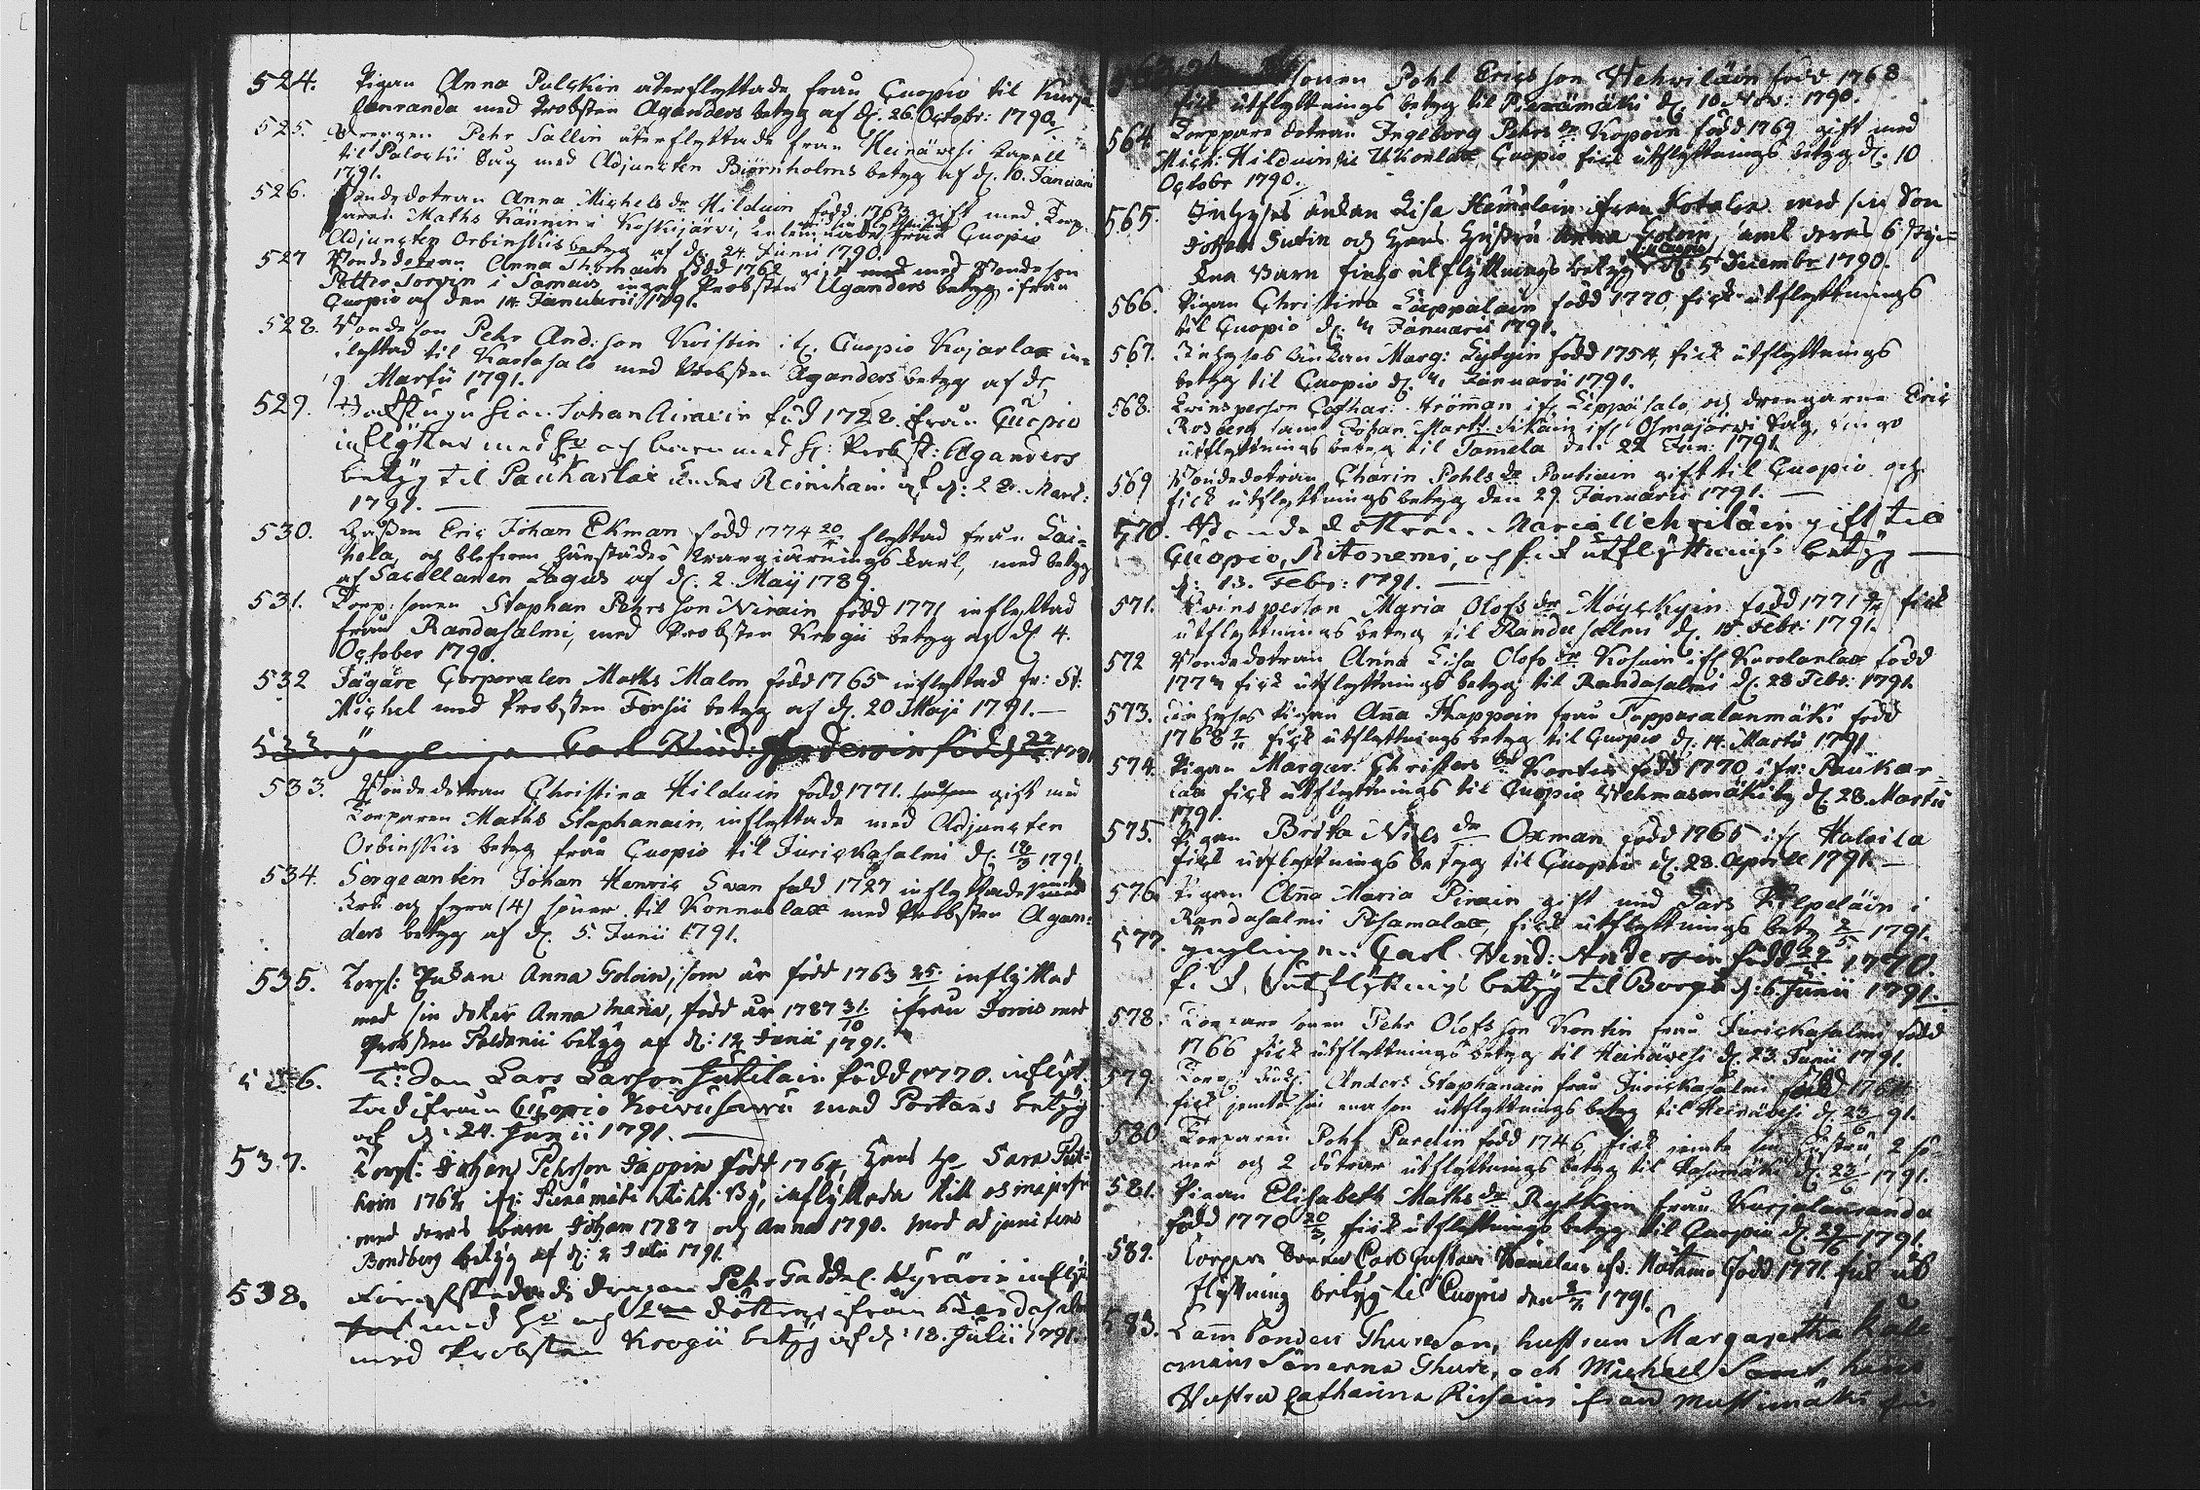 524. Pigan Anna Pulckin återflyttade från Cuopio til Kurja-
lanranda med Probsten Aganders betyg af d. 26 Octobr: 1790.
525. Drengen Pehr Sallin återflyttade från Heinävesi Capell
til Palockii Såg med Adjuncten Biörnholms betyg af d. 10. Januarii
1791.
526. Bondedotran Anna Michels dr Hilduin född 1767 gift med Torp
Maths Känninen i Koskijärvi, från Cuopio
Adjuncten Orbinskiis betyg af d. 24. Junii 1790.
527 Bondedotran Anna Thoman född 1762 gift med Bondeson
Petter Sorvin i Samais, med Probsten Aganders betyg ifrån
Cuopio af den 14 Januarii 1791.
528. Bondeson Pehr And: son Koistin if. Cuopio Kojarlax in-
flyttad til Kaskasalo med Probsten Aganders betyg af d.
9 Martii 1791.
529. Johan Airaxin född 1722. ifrån Cuopio
inflytter med Hu och barn med Hr: Probst: Aganders
betyg til Paukarlax under Reinikain af d: 28. Mart:
1791.
530. Gossen Eric Johan Ekman född 1774 20/ flyttad från Lai-
hela, og blefven härstädes med betyg
af Sacellanen Lagus af d. 2. Maij 1789.
531. Torp: sonen Staphan Pehrs son Nirain född 1771 inflyttad
från Randasalmi, med Probsten Krogii betyg af d 4.
October 1790.
532 Jägare Corporalen Maths Malm född 1765 inflyttad fr: St:
Michel med Probsten Forsii betyg af d. 20 Maji 1791.
533 ynglingen Carl Hind: Andersin född 22/ 1770
533. Bondedotran Christina Hilduin född 1771. gift med
Torparen Maths Staphanain, inflyttade med Adjuncten
Orbinskiis betyg från Cuopio til Jurickasalmi d. 18/3 1791.
534. Sergeanten Johan Henric Swan född 1727 inflyttade jemte
Fru og fyra (4) söner til Konnuslax med Probsten Agan-
ders betyg af d. 5. Junii 1791.
535. Torp: Enkan Anna Golvin, som är född 1763 25. inflyttad
med sin dotter Anna Maria, född år 1787 31/10 ifrån Jorois med
Probsten Poldanii betyg af d: 12 Junii 1791.
536. Lars Larsson Jutilain född 1770. inflyt-
tad ifrån Cuopio Koivusaari med Portans betyg
af d: 24. Junii 1791.
537. Torp: Johan Pehrsson Jäppin född 1764, Hans Hu Sara
1762 if: Piexämäki by, inflyttade till
med deras barn Johan 1787 och Anna 1790. med adjunctens
Bondberg betyg af d: 2 Julii 1791.
538. dragon Pehr Gaddd. Hyvärin infly-
tat med Hu och döttrar ifrån Randasalmi
med Probsten Krogii betyg af d: 18. Julii 1791.
sonen Pohl Ericsson Wehviläin född 1768
fick utflyttnings betyg til Piexämäki d. 10 Nov: 1790.
564. Torppare dotran Ingeborg Pehrs dr Kopoin född 1769 gift med
Mich: Hilduin til Ukonlax Cuopio fick utflyttnings betyg d. 10
Octobr 1790.
565. Inhyses enkan Lisa Hämäläin ifrån Kotalax med sin Son
Johan Sutin och Hans Hustru Anna Golvin samt deras 6 styc-
ken Barn fingo utflyttnings betyg til Cuopio d: 5 Decembr 1790.
566. Pigan Christina Läppäläin född 1770, fick utflyttnings
til Cuopio d. 4 Januarii 1791.
567. Inhyses änkan Marg: Lytzin född 1754, fick utflyttnings
betyg til Cuopio d. 4 Januarii 1791.
568. Kvinsperson Cathar: Ströman if. Leppäsalo, och drengarne Eric
Rosberg samt Johan Mart: Sikain if. Osmajärvi Såg, fingo
utflyttnings betyg til Jomela den 22 Jan: 1791.
569 Bondedotran Charin Pohls dr Poutiain gift til Cuopio och
fick utflyttningsbetyg den 29. Januarii 1791.
570. Bondedottren Maria Wehviläin gift til
Cuopio, Ritonemi, och fick utflyttnings betyg
d: 13. Febr: 1791.
571. Kvinsperson Maria Olofs dr Möyckyin född 1771 fick
utflyttnings betyg til Randasalmi d. 15. Febr: 1791.
572 Bondedotran Anna Lisa Olofs dr Kosuin if Karolanlax född
1774 fick utflyttnings betyg til Randasalmi d. 28 Febr: 1791.
573. Inhyses Pigan Aña Kappoin från Tapparalanmäki född
1768 fick utflyttnings betyg til Cuopio d. 14. Martii 1791.
574. Pigan Margar: Christers dr Kortin född 1770 ifr: Paukar-
lax fick utflyttnings til Cuopio Wehmasmäki by d. 28. Martii
1791.
575. Pigan Brita Nils dr Oxman född 1765 if Halvila
fick utflyttnings betyg til Cuopio d. 28. Aprill 1791.
576. Pigan Aña Maria Pirain gift med Lars Wilpoläin i
Randasalmi Pisamalax, fick utflyttnings betyg 2/5 1791.
577. ynglingen Carl Hind: Andersin född 22/ 1770.
fick utflyttnings betyg til Borgå d: 6 Junii 1791.
578. Torpare sonen Pehr Olofsson Kontin från Jurickasalmi född
1766 fick utflyttnings betyg til Heinävesi d. 23. Junii 1791.
579. Torp: Anders Staphanain från Jurickasalmi född 1764
fick jemte sin utflyttnings betyg til Heinävesi d 23/6 91.
580 Torparen Pohl Pardin född 1746 fick jemte sin Hustru 2 sö-
ner och 2 dötrar utflyttnings betyg til d 23/6 1791.
581. Pigan Elisabeth Maths dr Rytkyin från Kurjalanranda
född 1770 20/3 fick utflyttnings betyg til Cuopio d. 29/6 1791.
582. Torpare Sonen Carl Gustav Hämäläin if: Mötämö född 1771. fick ut
flyttning betyg til Cuopio den 1791.
583. Landbonden Thure Son, hustrun Margaretha
Sönerna Thure, och Michael Samt, hans
Hustru Catharina Rissain ifrån Mustimäki